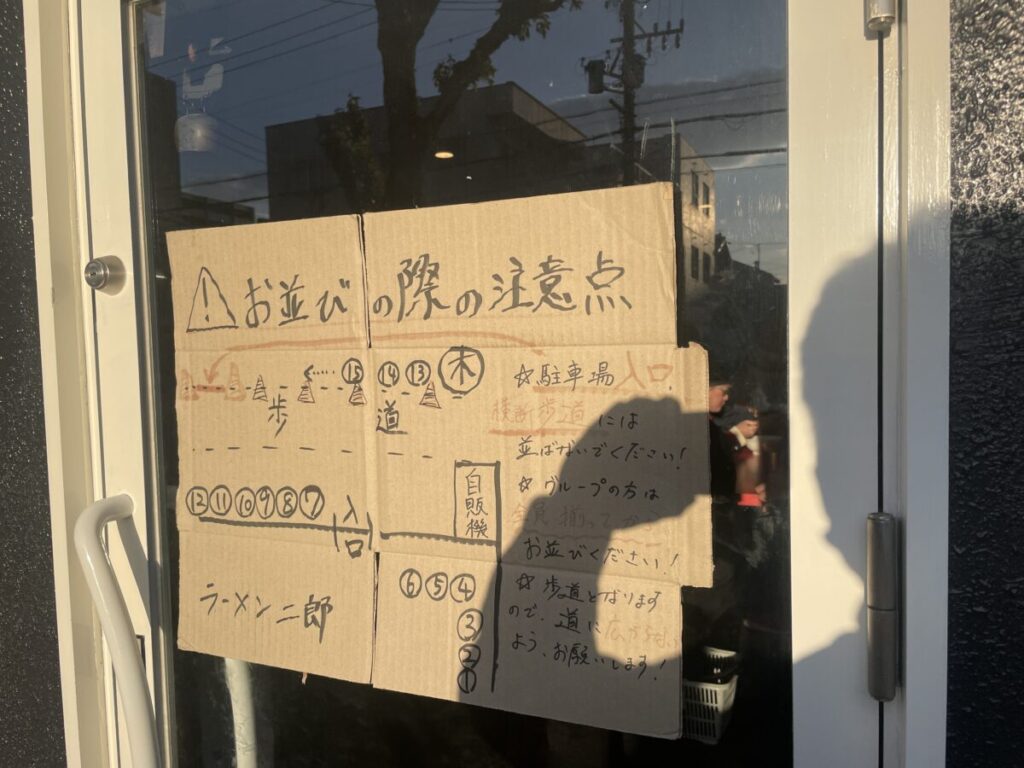 お並びの際の注意点
⑮ ⑭ ⑬ 木
歩道
自販機
⑫⑪⑩⑨⑧⑦
入口
⑥⑤④
③
②
①
ラーメン二郎
☆駐車場入口
横断歩道には
並ばないでください!
☆グループの方は
全員揃ってから
お並びください!
☆歩道となります
ので、道に広がらない
よう、お願いします!